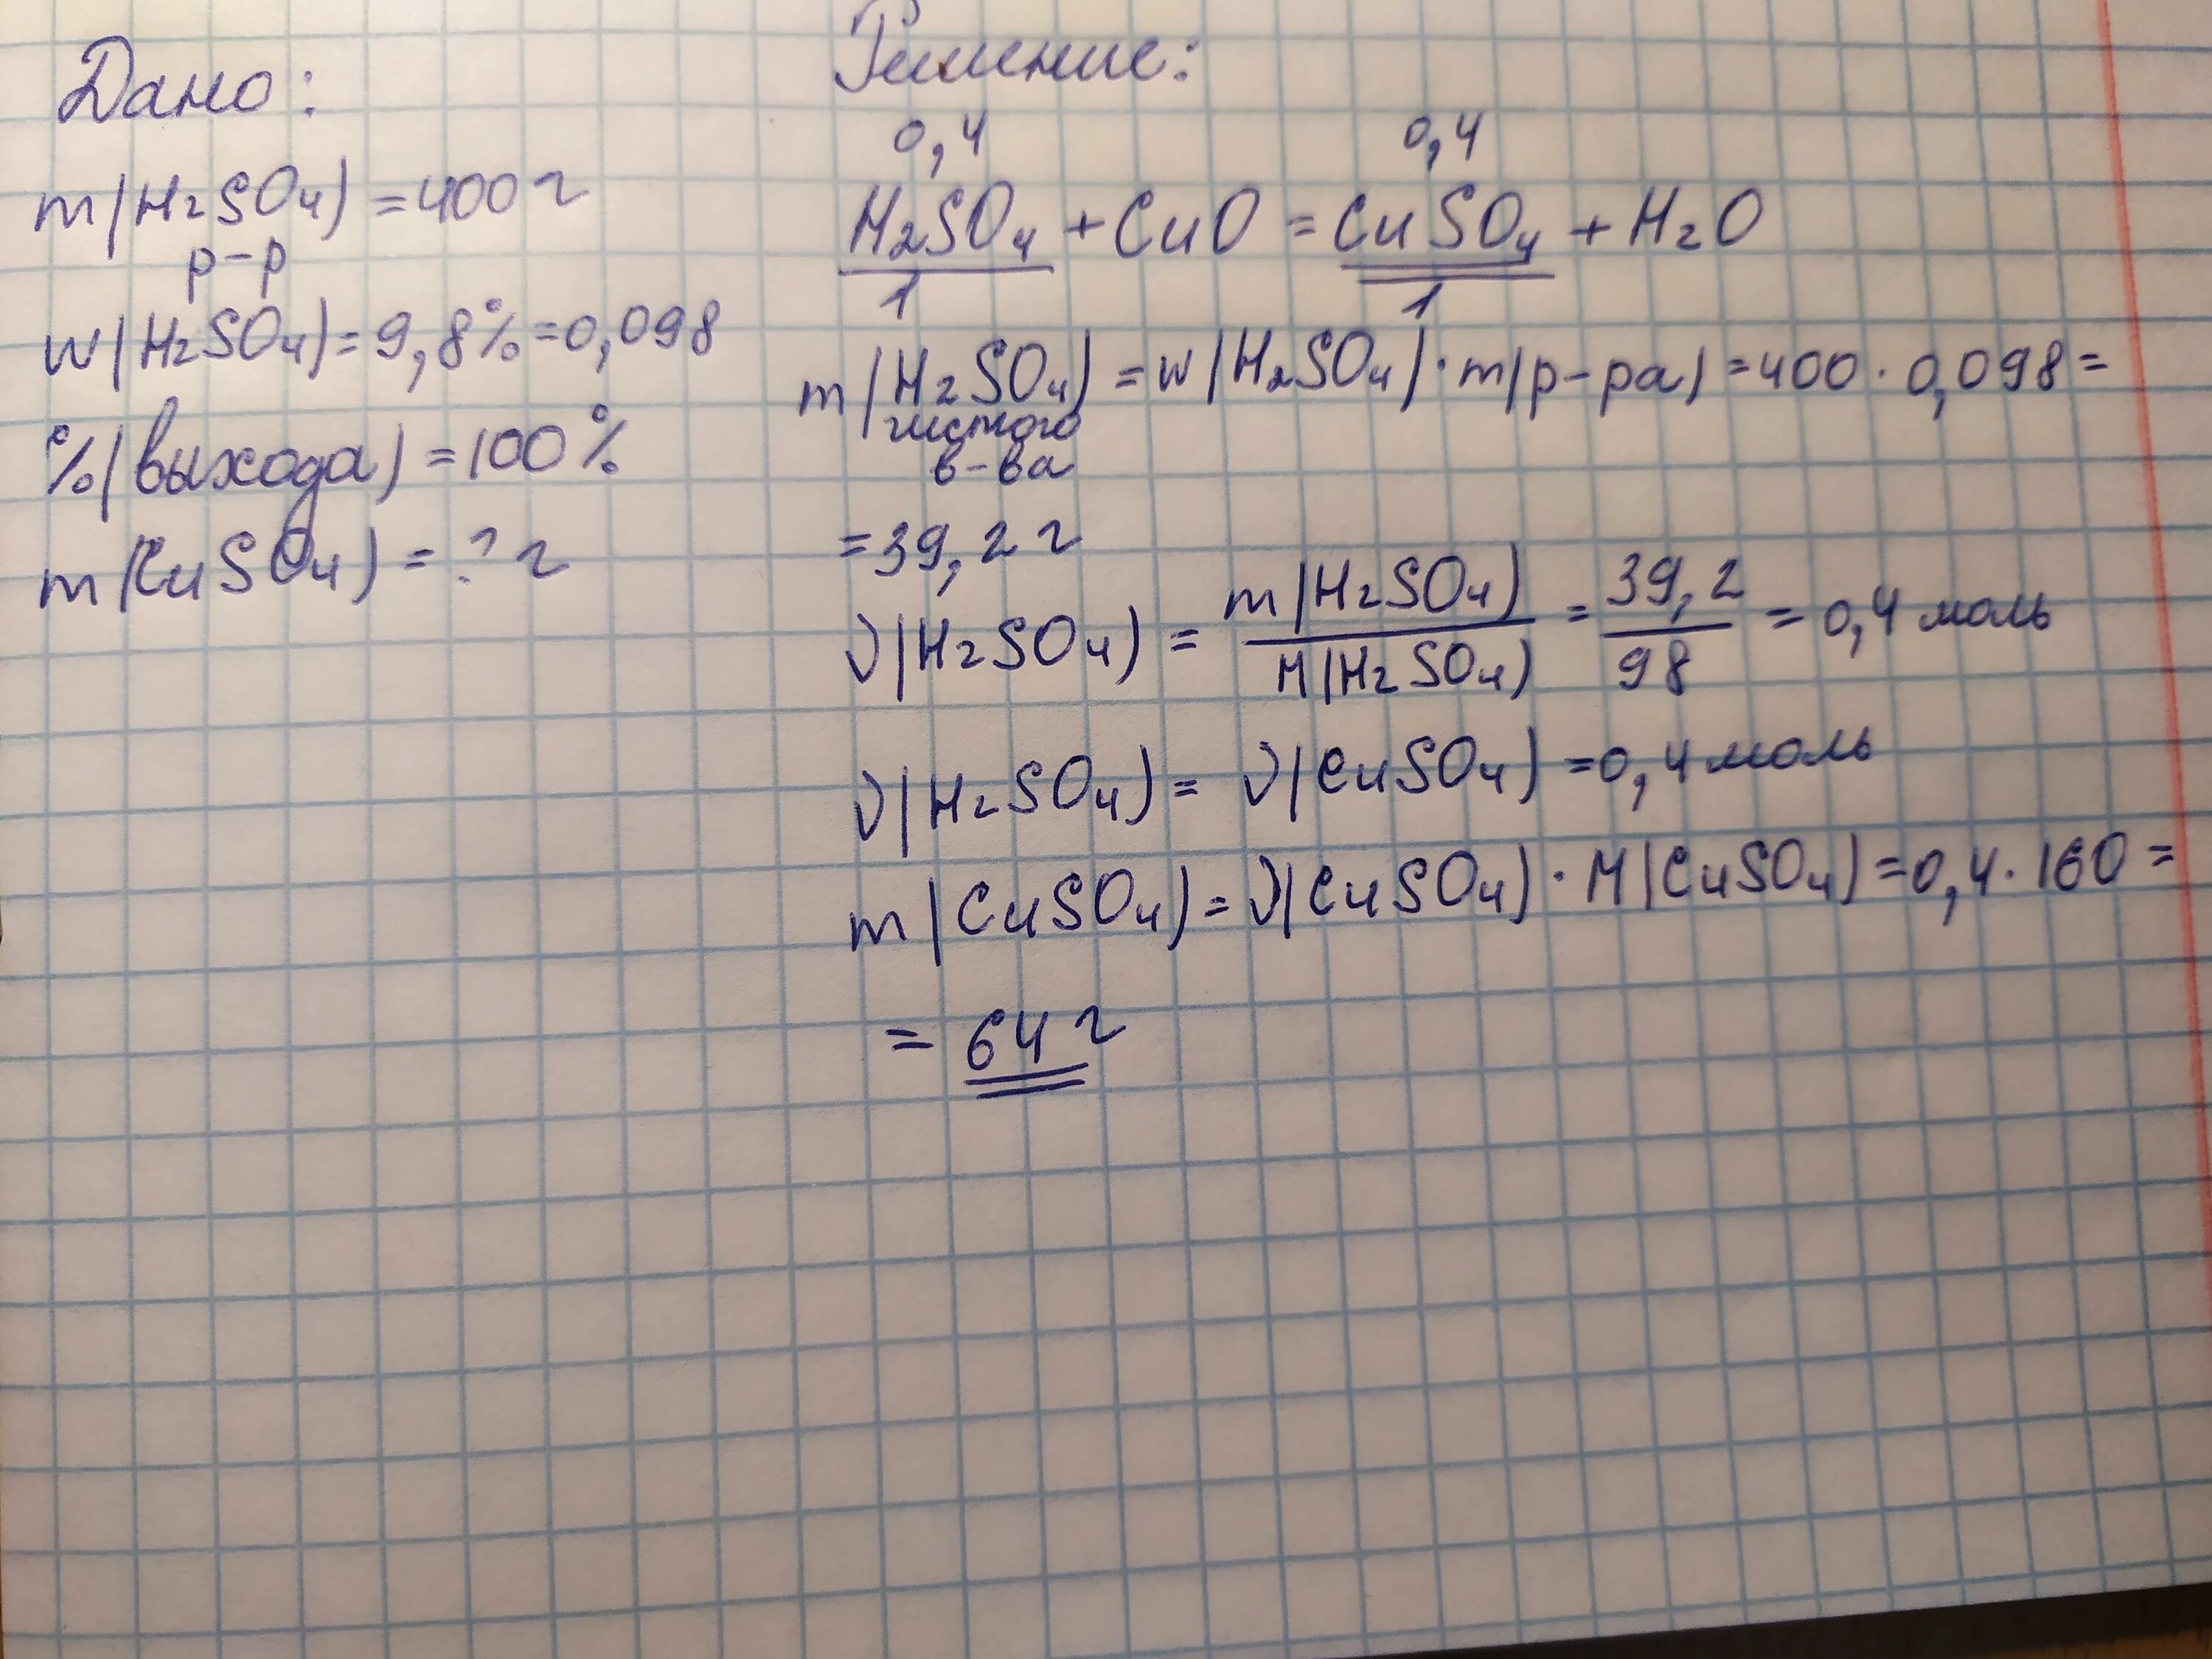 Дано:
m(H2SO4) = 400 г
р-р
w(H2SO4) = 9,8% = 0,098
%(выхода) = 100%
m(CuSO4) = ? г
Решение:
0,4 0,4
H2SO4 + CuO = CuSO4 + H2O
1 1
m(H2SO4) = w(H2SO4) · m(р-ра) = 400 · 0,098 =
чистого
в-ва
= 39,2 г
ν(H2SO4) = m(H2SO4) / M(H2SO4) = 39,2 / 98 = 0,4 моль
ν(H2SO4) = ν(CuSO4) = 0,4 моль
m(CuSO4) = ν(CuSO4) · M(CuSO4) = 0,4 · 160 =
= 64 г